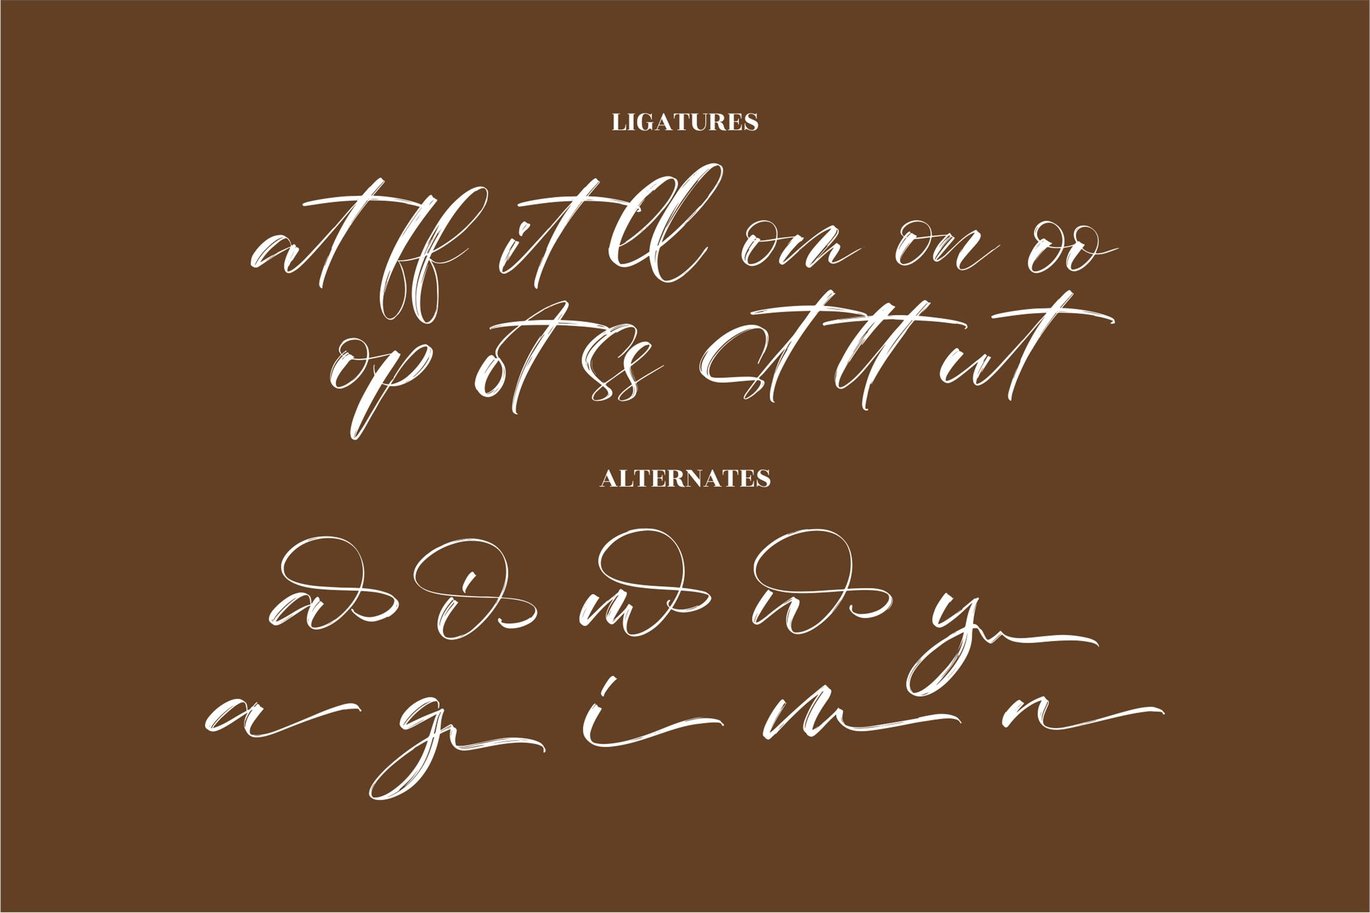 LIGATURES
at ff it ll om on oo
op ot ss st tt ut
ALTERNATES
a i m n y
a g i m n